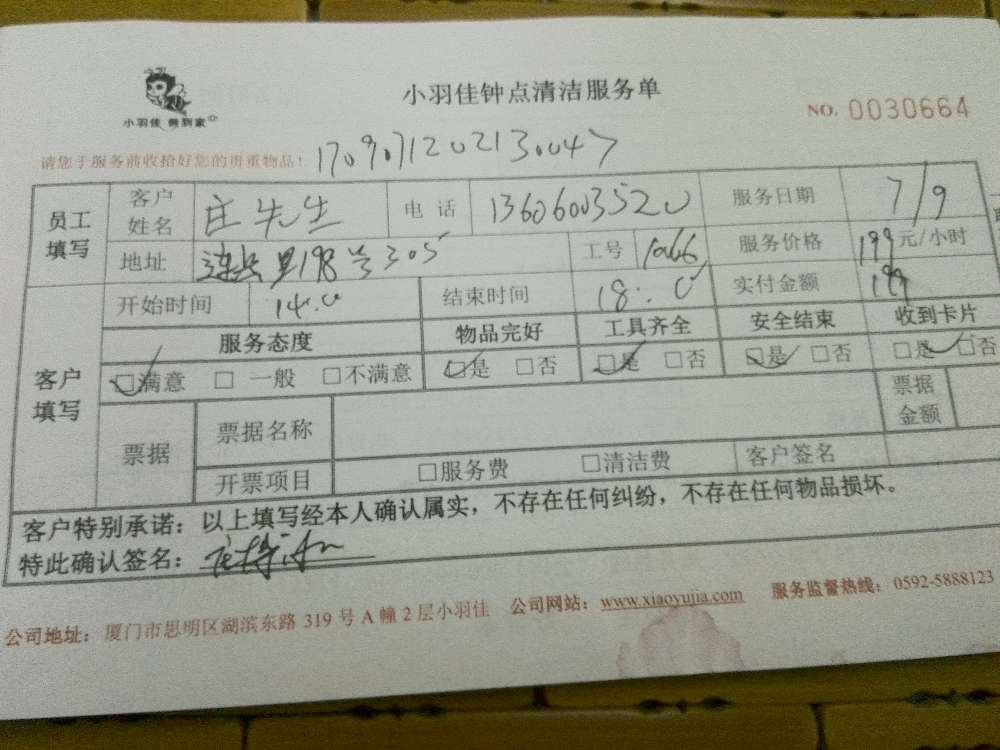 小羽佳钟点清洁服务单
小羽佳 做到家
NO. 0030664
请您于服务前收拾好您的贵重物品！
员工填写 客户姓名 庄先生 电 话 13606003520 服务日期 7/9
地址 198号305 工号 1066 服务价格 199元/小时
客户填写 开始时间 14:0 结束时间 18:0 实付金额 199
服务态度 物品完好 工具齐全 安全结束 收到卡片
□满意 □ 一般 □不满意 □是 □否 □是 □否 □是 □否 □是 □否
票据 票据名称 票据金额
开票项目 □服务费 □清洁费 客户签名
客户特别承诺：以上填写经本人确认属实，不存在任何纠纷，不存在任何物品损坏。
特此确认签名：
公司地址：厦门市思明区湖滨东路 319 号 A 幢 2 层小羽佳 公司网站：www.xiaoyujia.com 服务监督热线：0592-5888123